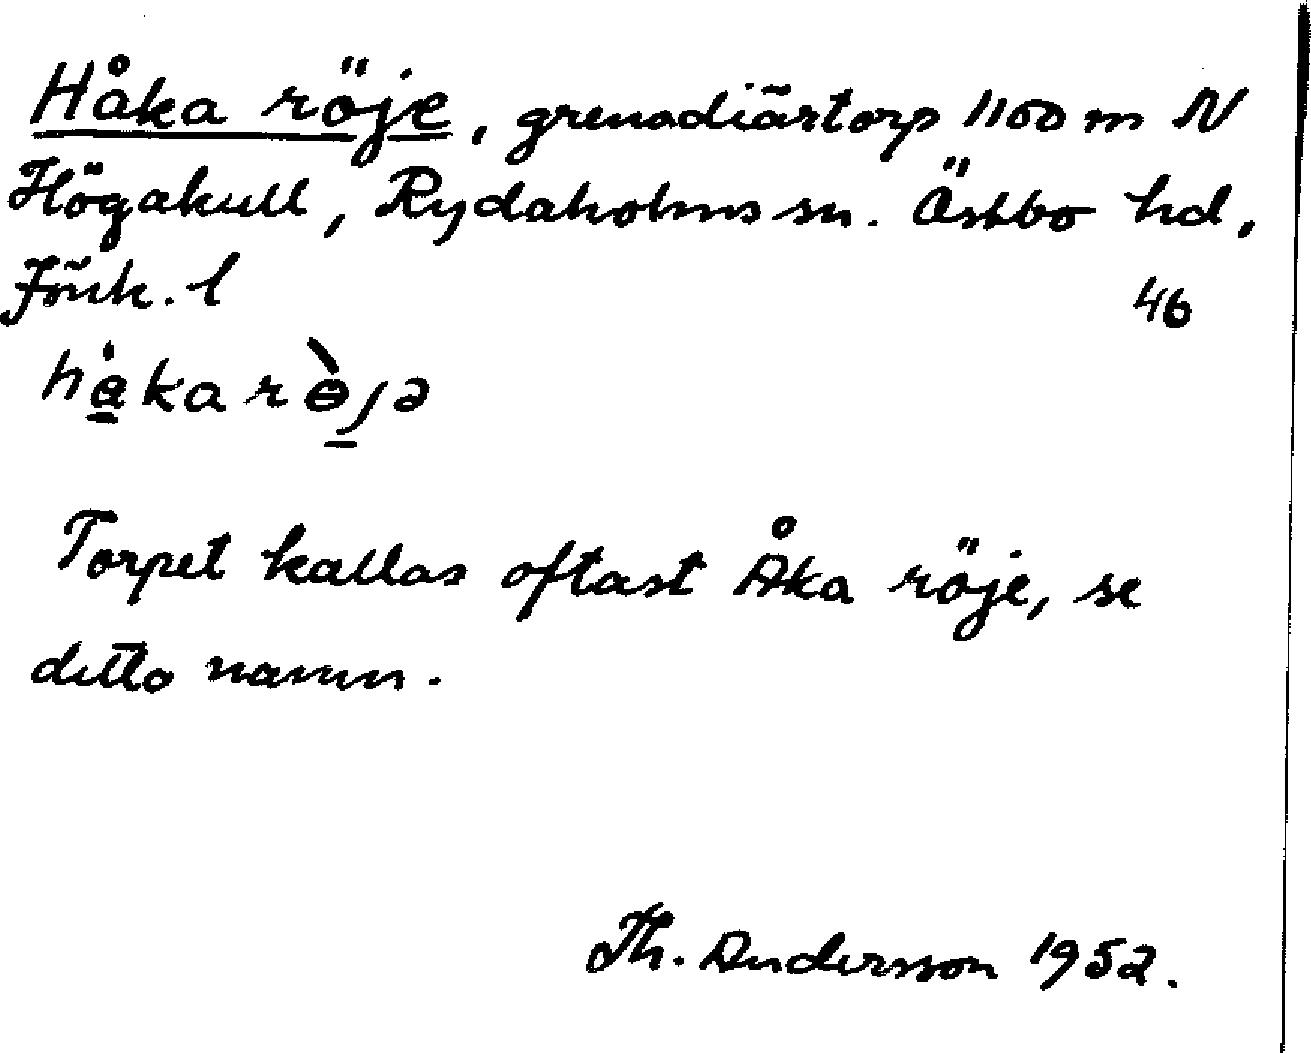 Håka röje, grenadiärtorp 1100 m N
Högakull, Rydaholms sn. Östbo hd,
Jönk. l
46
håkaròjə
Torpet kallas oftast Åka röje, se
detto namn.
Th. Andersson 1952.